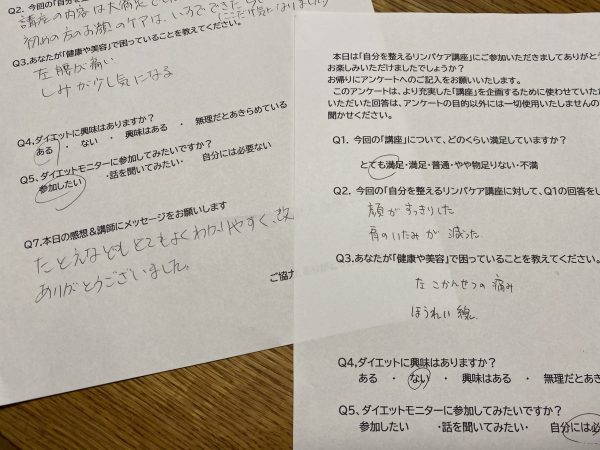 Q2. 今回の「自
講座の内容は大満足で
初めの方のお顔のケアは、いつできた
(ここだけ気になりました)
Q3.あなたが「健康や美容」で困っていることを教えてください。
左腰が痛い
しみが少し気になる
Q4.ダイエットに興味はありますか?
ある ・ ない ・ 興味はある ・ 無理だとあきらめている
Q5、ダイエットモニターに参加してみたいですか?
参加したい ・話を聞いてみたい・ 自分には必要ない
Q7.本日の感想&講師にメッセージをお願いします
たとえなども とてもよくわかりやすく、改
ありがとうございました。
ご協力
本日は「自分を整えるリンパケア講座」にご参加いただきましてありがとう
お楽しみいただけましたでしょうか?
お帰りにアンケートへのご記入をお願いいたします。
このアンケートは、より充実した「講座」を企画するために使わせていただ
いただいた回答は、アンケートの目的以外には一切使用いたしませんの
聞かせください。
Q1. 今回の「講座」について、どのくらい満足していますか?
とても満足・満足・普通・やや物足りない・不満
Q2. 今回の「自分を整えるリンパケア講座に対して、Q1の回答をし
顔がすっきりした
肩のいたみが 減った
Q3.あなたが「健康や美容」で困っていることを教えてください。
左 こかんせつの痛み
ほうれい線
Q4,ダイエットに興味はありますか?
ある ・ ない ・ 興味はある ・ 無理だとあき
Q5、ダイエットモニターに参加してみたいですか?
参加したい ・話を聞いてみたい・ 自分には必